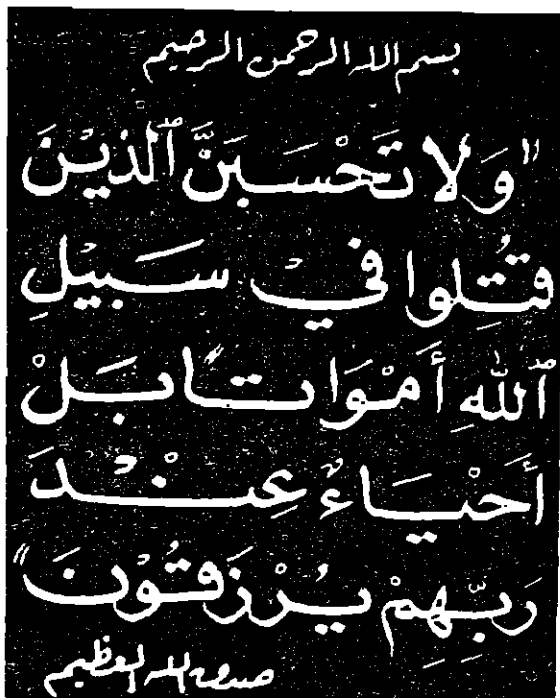 بسم الله الرحمن الرحيم
"وَلا تَحْسَبَنَّ ٱلَّذِيْنَ
قُتِلوا فيْ سَبيْلِ
ٱللَّهِ أَمْوَاتاً بَلْ
أَحْيَاءٌ عِنْدَ
رَبِّهِمْ يُرْزَقُوْنَ"
صدق الله العظيم